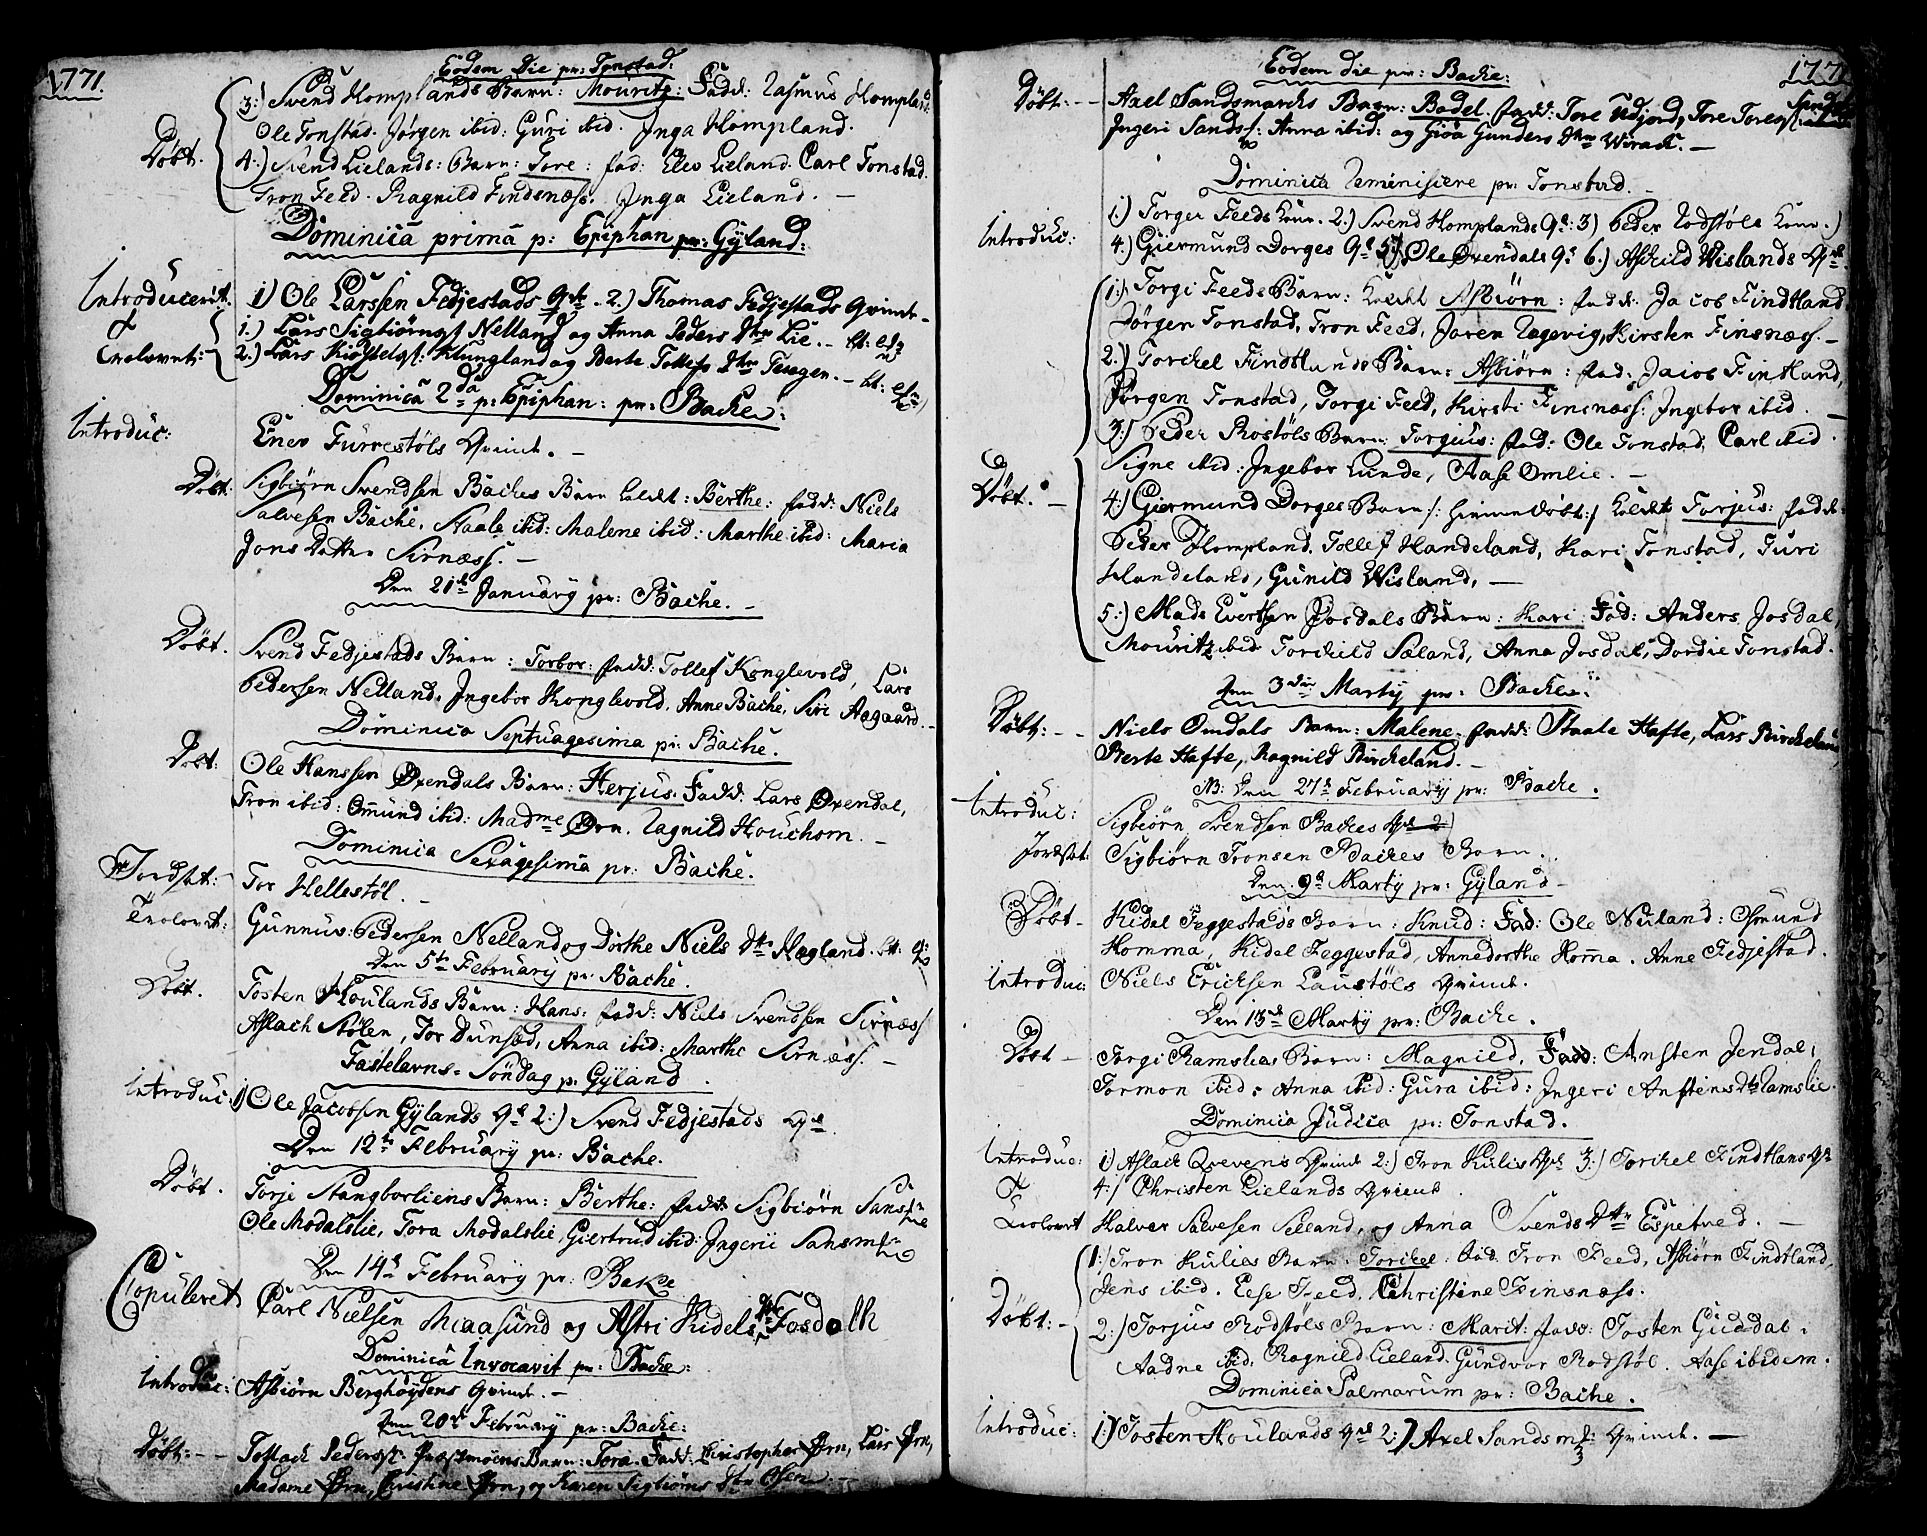 1771.
Eodem Die pr: Tonstad.
3:) Svend Homplands Barn: Mouritz: Fadd: Rasmus Hompland:
Døbt. Ole Tonstad. Jørgen ibid: Guri ibid. Inga Hompland.
4:) Svend Lielands: Barn: Tore: fad: Elev Lieland. Carl Tonstad.
Tron Feed. Ragnild Findsnæss. Inga Lieland. —
Dominica prima p: Epiphan pr: Gyland:
Introducerit: 1) Ole Larssen Fedjestads Qvde - 2.) Thomas Fedjestads Qvinde -
& 1.) Lars Sigbiørns. Nelland og Anna Peders Dtr Lie. -
Trolovet: 2.) Lars Kiøstels: Klungland og Berte Tollefs Dtr Tesegen. -
Dominica 2da p: Epiphan: pr: Backe:
Introduc: Enev Furrestøls Qvinde. —
Døbt: Sigbiørn Svendsen Backes Barn kaldet: Berthe: fadd: Niels
Salvesen Backe, Staale ibid: Malene ibid: Marthe ibid: Maria
Jons Datter Sirnæss. —
Den 21de January pr: Backe. —
Døbt. Svend Fedjestads Barn: Torbor: fadd: Tollef Konglevold, Lars
Pedersen Nelland, Ingebor Konglevold. Anne Backe, Siri Aagaard. -
Dominica Septuagesima pr: Backe.
Døbt: Ole Hanssen Øxendals Barn: Herjus: Fadd: Lars Øxendal,
Tron ibid: Omund ibid: Madme Ørn. Ragnild Houchom. —
Dominica Sexagesima pr: Backe.
Jordsat: - Tor Hellestøl. —
Trolovet: Gunnuv: Pedersen Nelland og Dorthe Niels Dtr Hægland.
Den 5te February pr: Backe.
Døbt. Tosten Houlands Barn: Hans: fadd: Niels Svendsen Sirnæss
Aslach Stølen, Tor Dunsæd, Anna ibid: Marthe Sirnæss. —
Fastelavns-Søndag p. Gyland.
Introduc: 1) Ole Jacobsen Gylands Qd 2:) Svend Fedjestads Qvd
Den 12te February pr: Backe.
Døbt. Torje Stangborliens Barn: Berthe: fadd: Sigbiørn Sans
Ole Modalslie, Tora Modalslie, Giertrud ibid: Ingerii Sansm
Den 14de February pr: Bake
Copuleret Carl Nielsen Miaasund og Astri Kidels Dtr Josdalh
Dominica Invocavit pr: Backe:
Introduc: Asbiørn Berghøydens Qvinde. —
Den 20de February pr: Backe:
Døbt: - - Tollack Peders: Barn: Tora. Fadd: Christopher Ørn, Lars Ørn,
Madame Ørn, Christine Ørn, og Karen Sigbiørns Dtr Olsen. —
1771
Eodem die pr: Backe:
Døbt: - - Axel Sandsmarks Barn: Bodel. fadd: Tore Udjord, Tore Tores
Ingeri Sands: Anna ibid: og Gioa Gunders Dtr Wirack. —
Dominica Reminisiere pr: Tonstad. -
Introduc: 1.) Torger Feeds Kone. 2.) Svend Homplands Qd: 3) Peder Rodstøls Kone.)
4.) Giermund Dorges Qd 5.) Ole Øxendals Qd 6.) Askild Wislands Qvd.
1:) Torgi Feeds Barn: kaldt Asbiørn: fadd: Jacob Findtland
Jørgen Tonstad, Tron Feed, Joren Ragevig, Kirsten Finsnæss. -
2.) Torckel Findtlands Barn: Asbiørn: fad: Jacob Fintland,
Jørgen Tonstad, Torgi Feed, Kirsti Finsnæss: Ingebor ibid. —
3:) Peder Rostøls Barn: Torgius: fad: Ole Tonstad, Carl ibid.
Signe ibid: Ingebor Lunde, Aase Omlie. —
Døbt. — 4:) Giermund Dorges Barn /: hiemedøbt:/ kaldet Torjus: fadd:
Peder Hompland. Tollef Handeland, Kari Tonstad, Turi
Handeland, Gunild Wisland. —
5:) Mads Evertsen Josdals Barn: Kari: Fad: Anders Josdal,
Mouritz ibid: Torckild Sæland, Anna Josdal, Dordie Tonstad.
Den 3die Marty pr: Backe:
Døbt: - - Niels Omdals Barn: Malene. fadd: Staale Hafte, Lars Birckeland,
Berte Hafte, Ragnild Birckeland. —
NB: Den 27de February pr: Backe.
Introduc: Sigbiørn Svendsen Backes Qvd
Jordsat: Sigbiørn Tronsen Backes Barn.
Den 9de Marty pr: Gyland -
Døbt - Kidel Feggestads Barn: Knud: Fad: Ole Nuland: Osmund
Homma, Kidel Feggestad, Annedorthe Homma. Anne Fedjestad.
Introduc: Niels Ericksen Laustøls Qvinde.
Den 13de Marty pr: Backe.
Døbt - Torgi Ramslias Barn: Magnild. Fadd: Ansten Jendal:
Tormon ibid: Anna ibid: Gura ibid: Ingeri Anstens Dtr Ramslie.
Dominica Judica pr: Tonstad.
Introduc: 1:) Aslack Qvevens Qvinde 2:) Tron Kulis Qvd 3:) Torckel Findtlans Qd
& 4:) Christen Lielands Qvinde.
Trolovet Halvor Salvesen Selland, og Anna Svends Dtr Espetved. —
1:) Tron Kulias Barn: Torckel: Fad: Tron Feed, Asbiørn Findtland,
Jens ibid. Eese Feed, Christine Finsnæss.
Døbt: - 2:) Torjus Rodstøls Barn: Marit: fadd: Tosten Guddal.
Aadne ibid. Ragnild Lieland. Gundvor Rodstøl. Aase ibidem.
Dominica Palmarum pr: Backe.
Introduc: 1:) Tosten Houlands Qvd 2:) Axel Sandsm: Qvinde. —